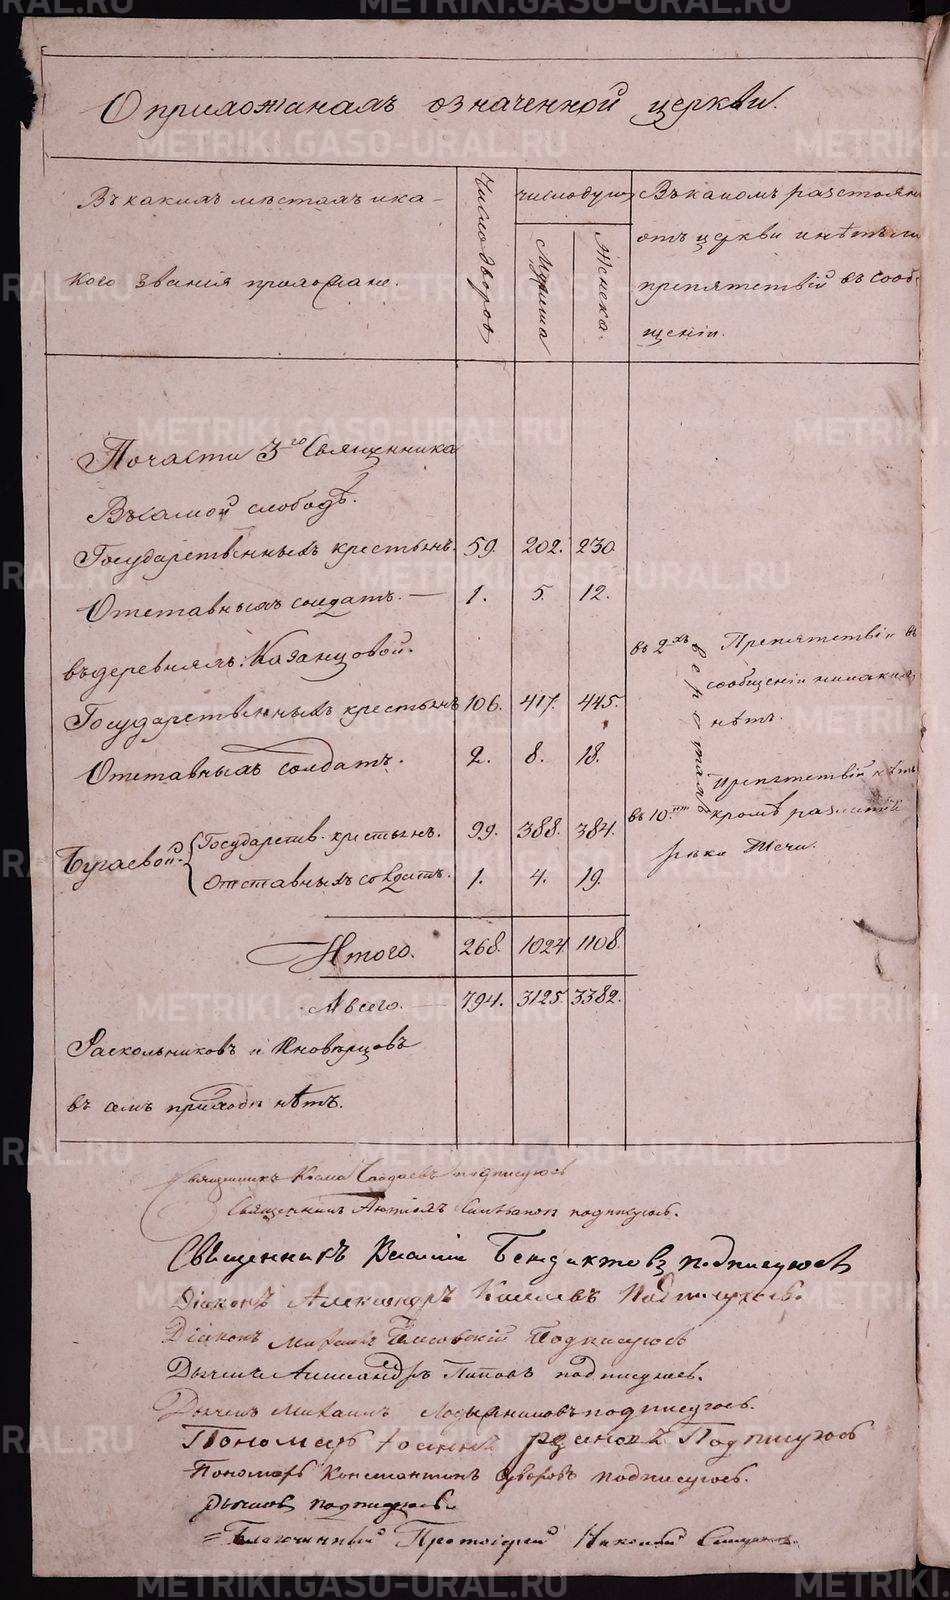 О прихожанахъ означенной церкви.
Въ какихъ местахъ и ка-
кого звания прихожане.
Число дворовъ
Число душъ
Мужеска
Женска.
Въ какомъ разстоян
отъ церкви и нѣтъ ли
препятствій въ сооб-
щеніи.
По части 3го Священника
Въ самой слободѣ.
Государственныхъ крестьянъ. 59. 202. 230
Отставныхъ солдатъ. — 1. 5. 12.
въ деревняхъ: Казанцовой.
Государственныхъ крестьянъ 106. 417. 445.
Отставныхъ солдатъ. 2. 8. 18.
въ 2хъ
верстахъ
Препятствій въ
сообщеніи никакихъ
нѣтъ.
Бугаевой. Государств. крестьянъ. 99. 388. 384.
Отставныхъ солдатъ. 1. 4. 19.
въ 10ти
Препятствій нѣтъ
кромѣ разлитій
рѣки Течи.
Итого. 268. 1024. 1108.
А всего. 794. 3125. 3382.
Раскольниковъ и Иновѣрцовъ
въ семъ приходѣ нѣтъ.
Священникъ Козма подписуюсь
Священникъ подписуюсь.
Священникъ Василій Бендиктовъ подписуюсь
Діаконъ Александръ Киселевъ Подписуюсь.
Діаконъ Михаилъ Подписуюсь
Дьячекъ Александръ Поповъ подписуюсь.
Дьячекъ Михаилъ подписуюсь.
Пономарь Подписуюсь
Пономарь Константинъ Суворовъ подписуюсь.
подписуюсь.
Благочинный Протоіерей Николай
METRIKI.GASO-URAL.RU